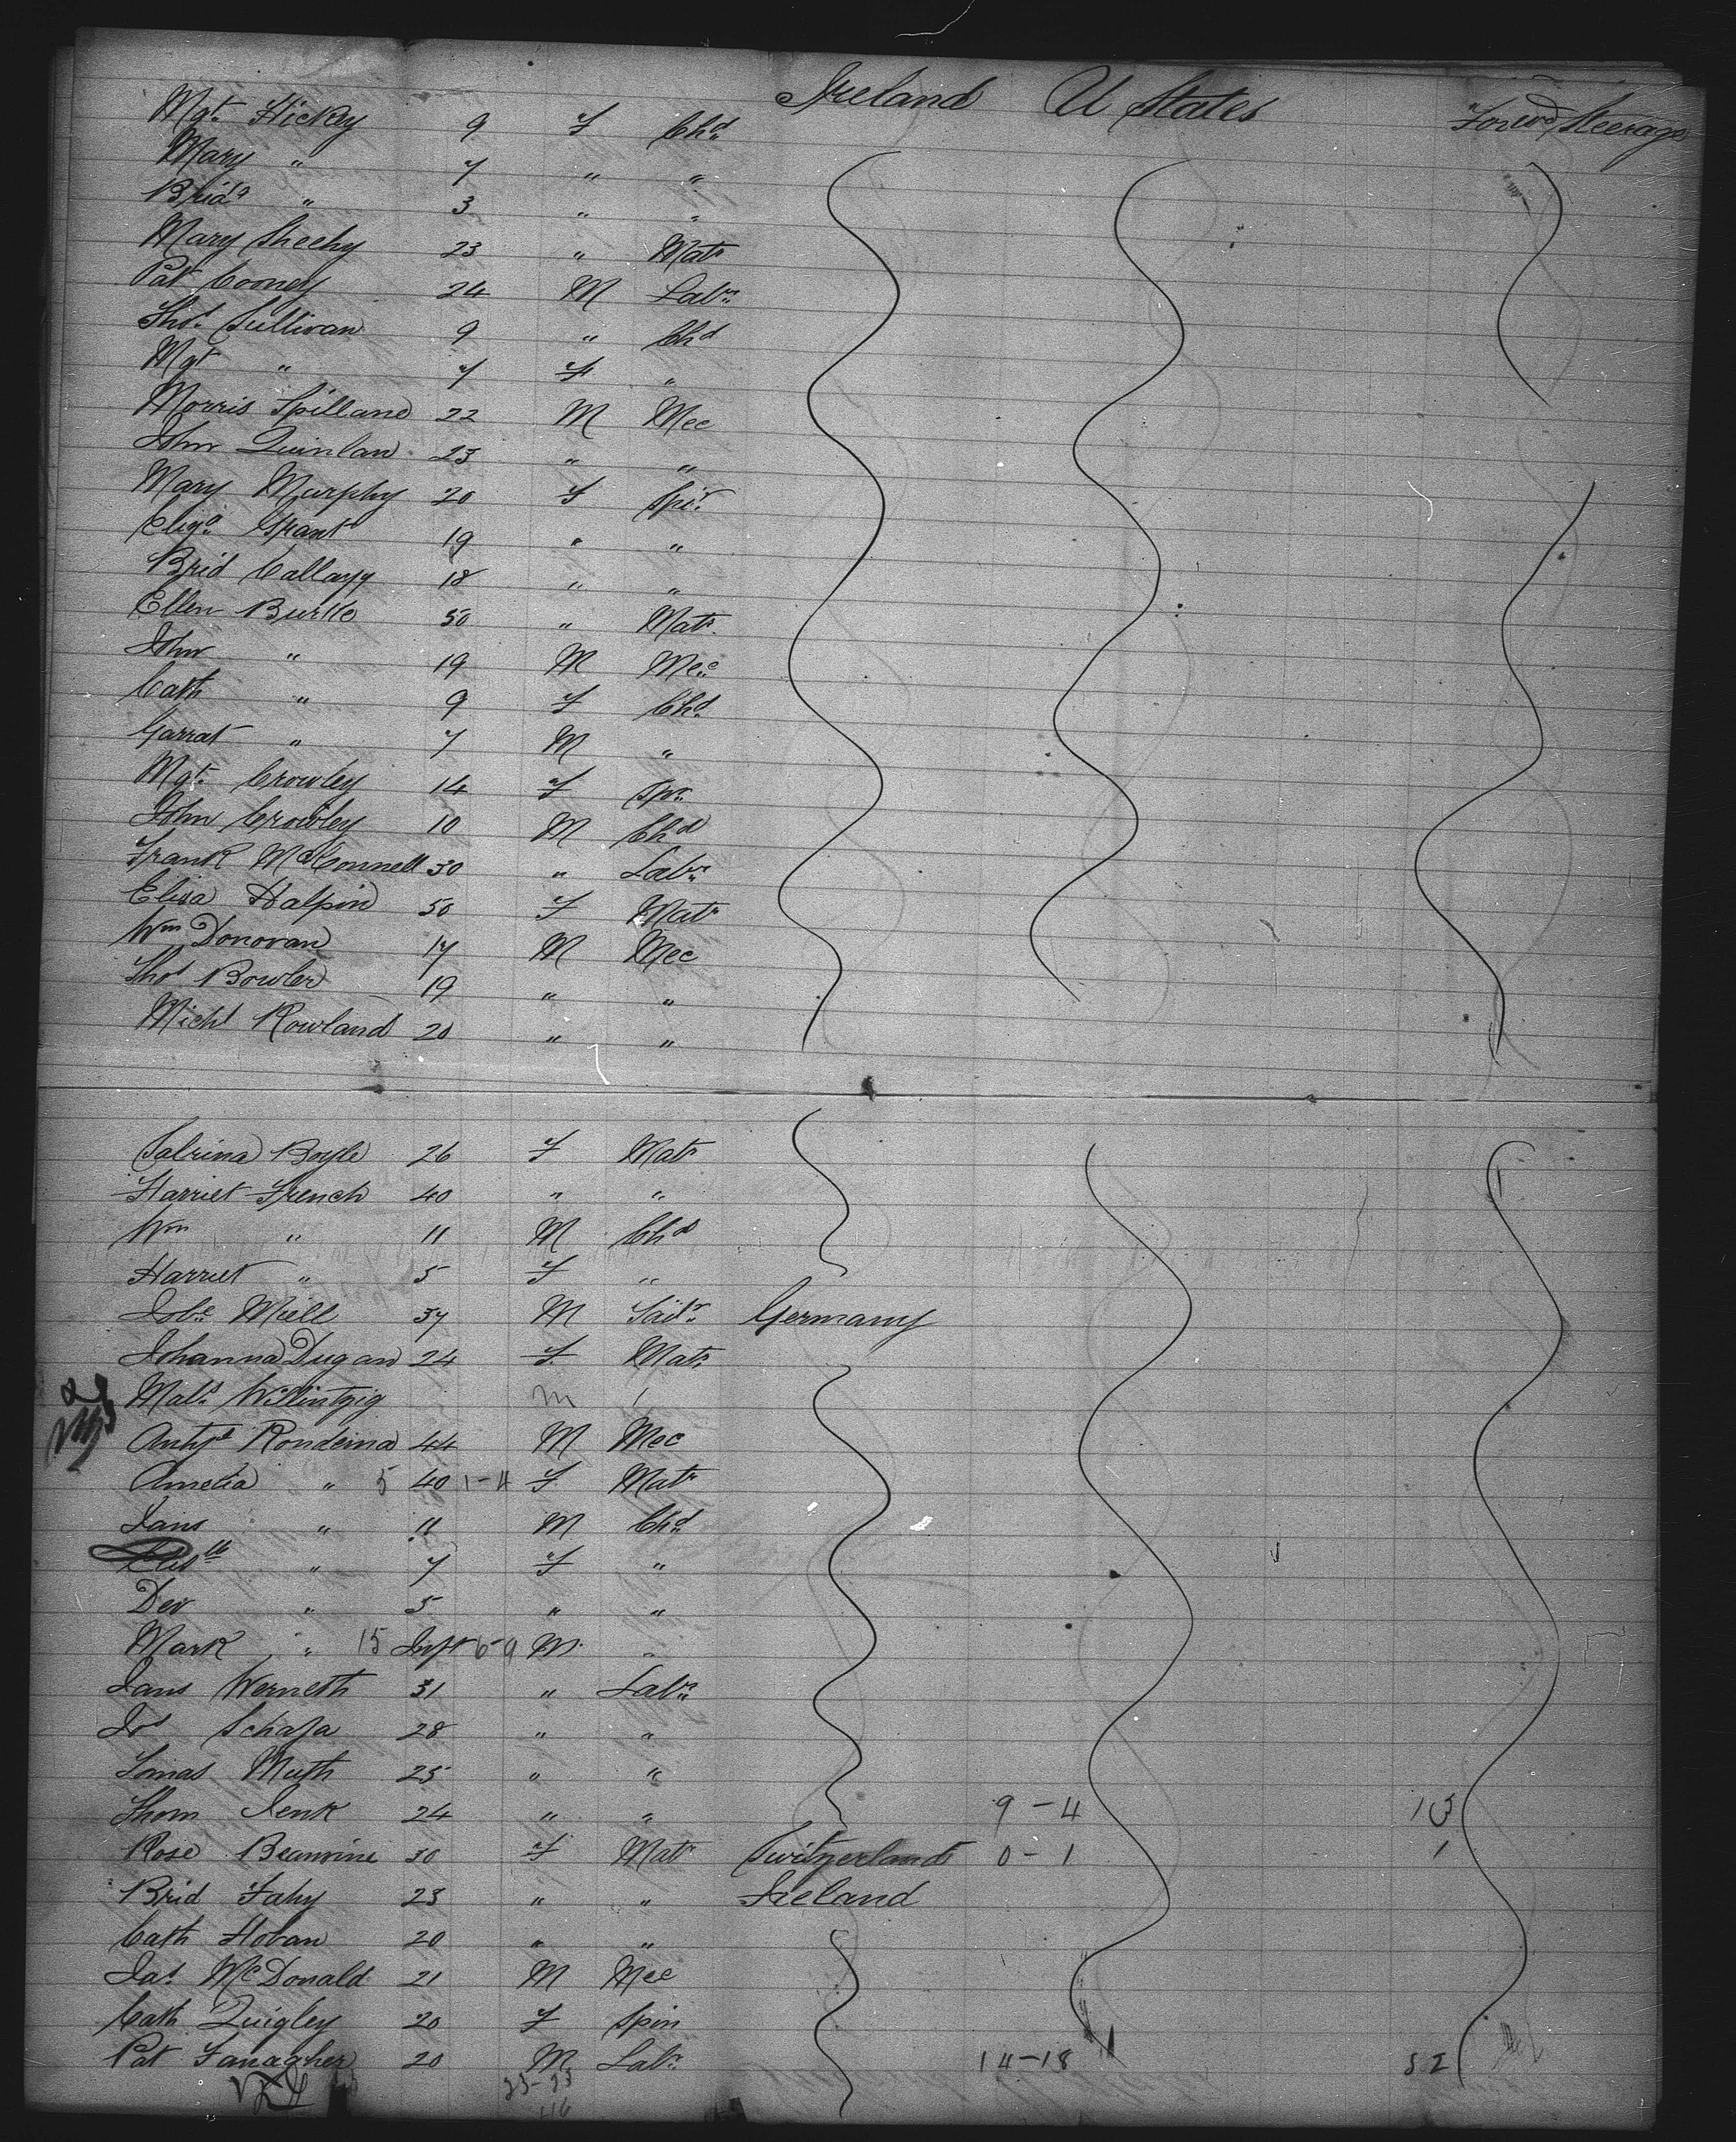 Ireland U States Forwd Steerage
Mgt. Hickey 9 F Chd
Mary " 7 " "
Bridt " 3 " "
Mary Sheehy 23 " Matr
Pat Cooney 24 M Labr
Thos. Sullivan 9 " Chd
Mgt " 7 F "
Morris Spillane 22 M Mec
John Quinlan 23 " "
Mary Murphy 20 F Spr
Eliza Grant 19 " "
Brid 18 " "
Ellen Burke 50 " Matr.
John " 19 M Mec
Cath " 9 F Chd
Garrat " 7 M "
Mgt. Crowley 14 F Spr.
John Crowley 10 M Chd
Frank McConnell 30 " Labr
Eliza Halpin 50 F Matr
Wm Donovan 17 M Mec
Thos Bowler 19 " "
Michl Rowland 20 " "
Sabrina Boyle 26 F Matr
Harriet French 40 " "
Wm " 11 M Chd
Harriet " 5 F "
Miell 37 M Germany
Johanna Dugan 24 F Matr
M
Rondeina 44 M Mec
Amelia " 5 40 1-4 F Matr
Jans " 11 M Chd
" 7 F "
Dev " 5 " "
Mark " 15 Inft 6-9 M "
Jans Werneth 31 " Labr
Jos Schafa 28 " "
Tomas Muth 25 " "
Thom Jenk 24 " " 9-4 13
Rose 30 F Matr Switzerland 0-1 1
Brid Fahy 23 " " Ireland
Cath Hoban 20 " "
Jas. McDonald 21 M Mec
Cath Quigley 20 F Spin
Pat Fanagher 20 M Labr 14-18 52
23-23
46